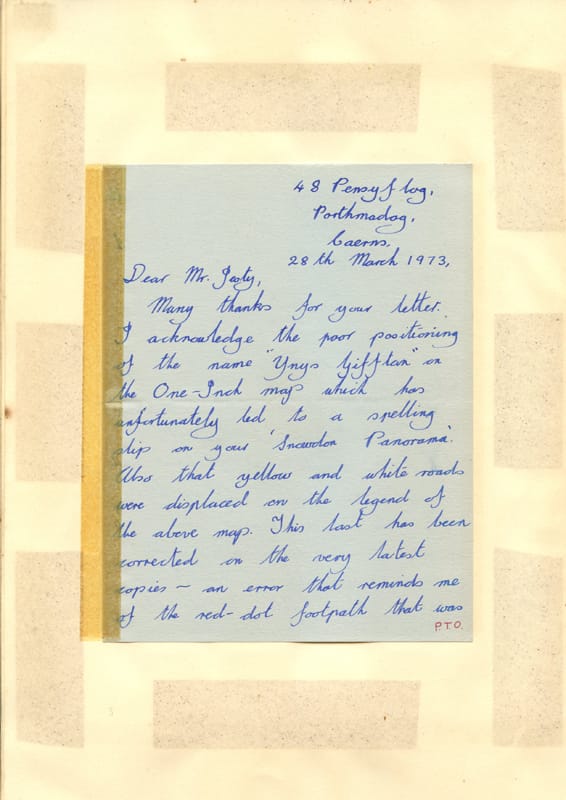 48 Pensyflog,
Porthmadog,
Caerns.
28th March 1973,
Dear Mr. Jesty,
Many thanks for your letter.
I acknowledge the poor positioning
of the name "Ynys Gifftan" on
the One-Inch map which has
unfortunately led to a spelling
slip on your 'Snowdon Panorama'.
Also that yellow and white roads
were displaced on the legend of
the above map. This last has been
corrected on the very latest
copies ~ an error that reminds me
of the red-dot footpath that was
P.T.O.